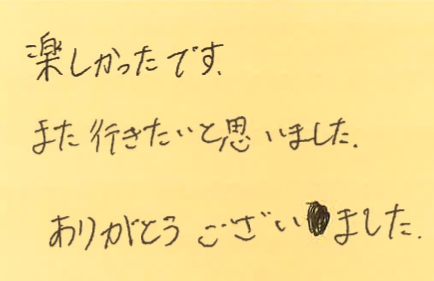 楽しかったです.
また行きたいと思いました.
ありがとうございました.